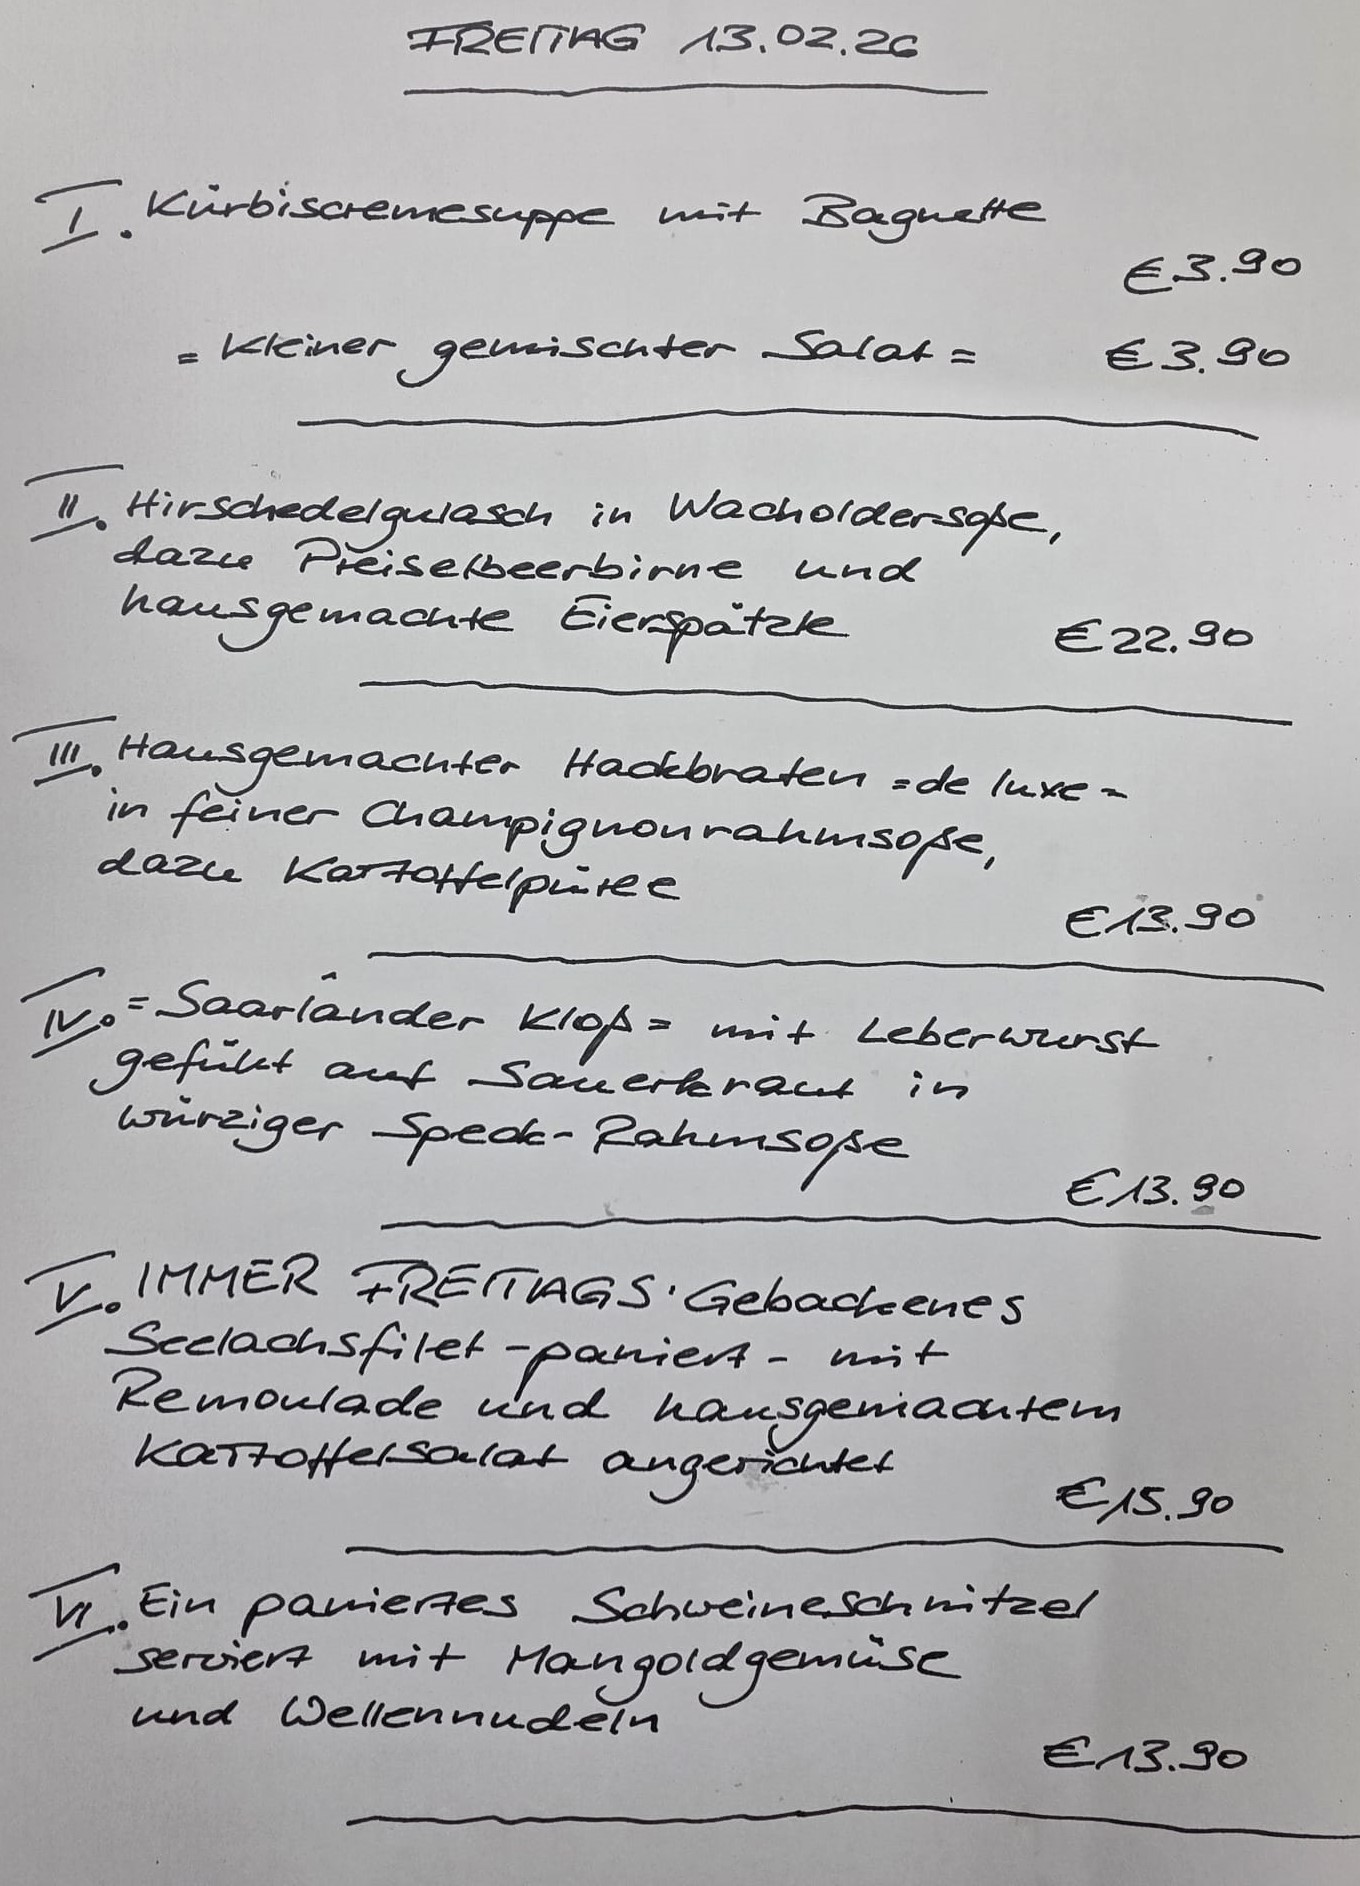 FREITAG 13.02.26
I. Kürbiscremesuppe mit Baguette
€ 3.90
= Kleiner gemischter Salat = € 3.90
II. Hirschedelgulasch in Wacholdersoße,
dazu Preiselbeerbirne und
hausgemachte Eierspätzle € 22.90
III. Hausgemachter Hackbraten =de luxe=
in feiner Champignonrahmsoße,
dazu Kartoffelpüree
€ 13.90
IV. =Saarländer Kloß= mit Leberwurst
gefüllt auf Sauerkraut in
würziger Speck-Rahmsoße
€ 13.90
V. IMMER FREITAGS: Gebackenes
Seelachsfilet -paniert- mit
Remoulade und hausgemachtem
Kartoffelsalat angerichtet
€ 15.90
VI. Ein paniertes Schweineschnitzel
serviert mit Mangoldgemüse
und Wellennudeln
€ 13.90